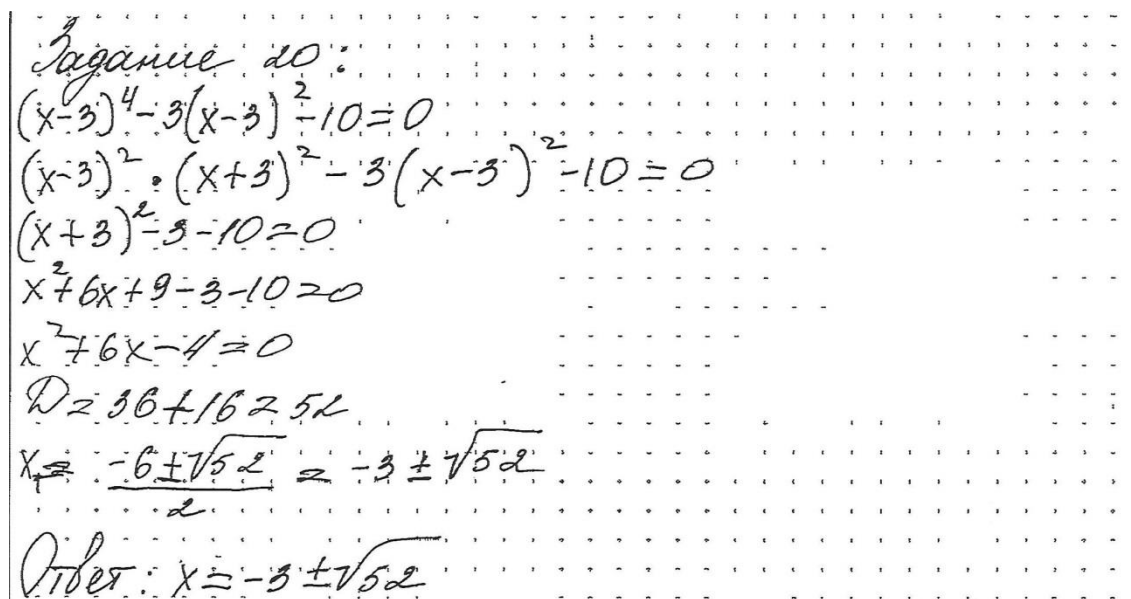 Задание 20:
(x-3)⁴-3(x-3)²-10=0
(x-3)²·(x+3)²-3(x-3)²-10=0
(x+3)²-3-10=0
x²+6x+9-3-10=0
x²+6x-4=0
D=36+16=52
x₁= (-6±√52)/2 = -3±√52
Ответ: x=-3±√52